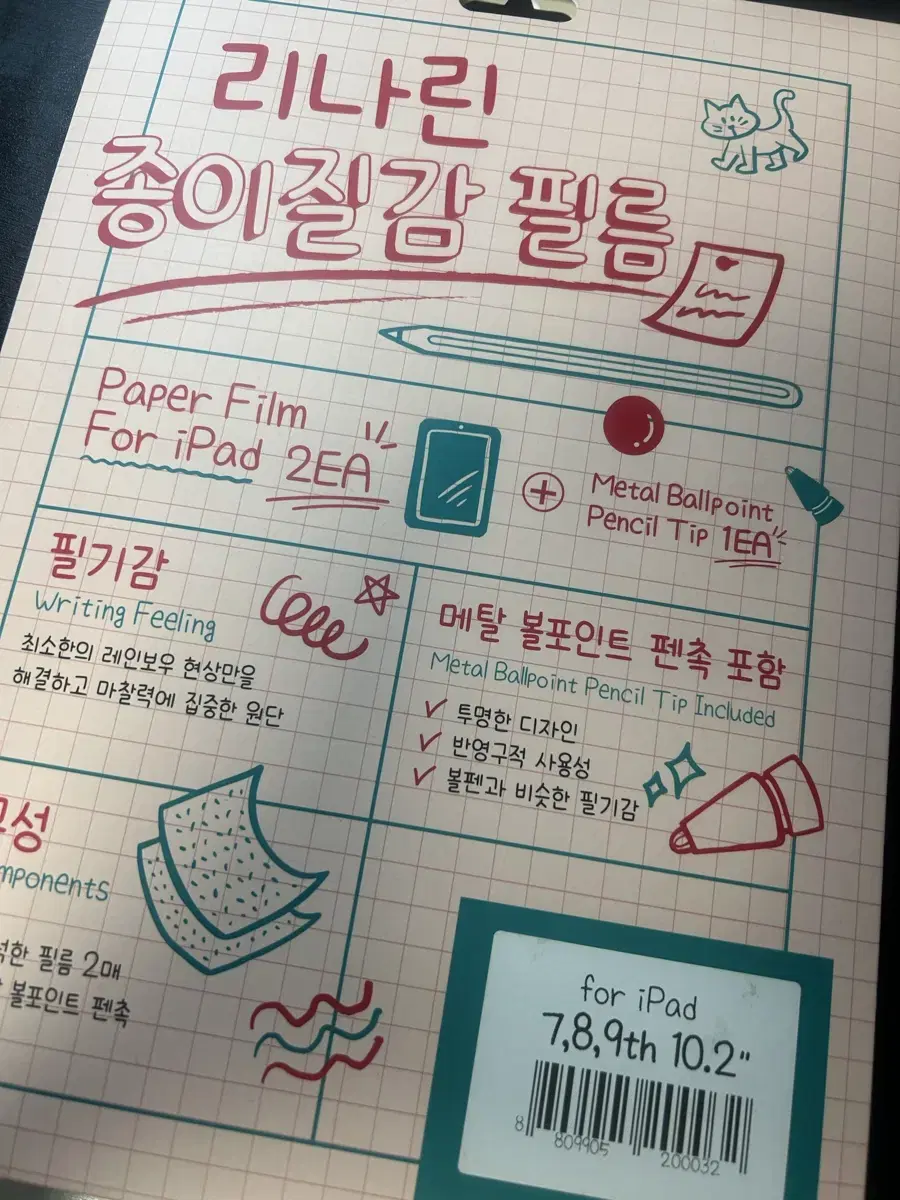 리나린
종이질감 필름
Paper Film
For iPad 2EA
Metal Ballpoint
Pencil Tip 1EA
필기감
Writing Feeling
최소한의 레인보우 현상만을
해결하고 마찰력에 집중한 원단
메탈 볼포인트 펜촉 포함
Metal Ballpoint Pencil Tip Included
투명한 디자인
반영구적 사용성
볼펜과 비슷한 필기감
필름 2매
볼포인트 펜촉
for iPad
7,8,9th 10.2"
8 809905 200032